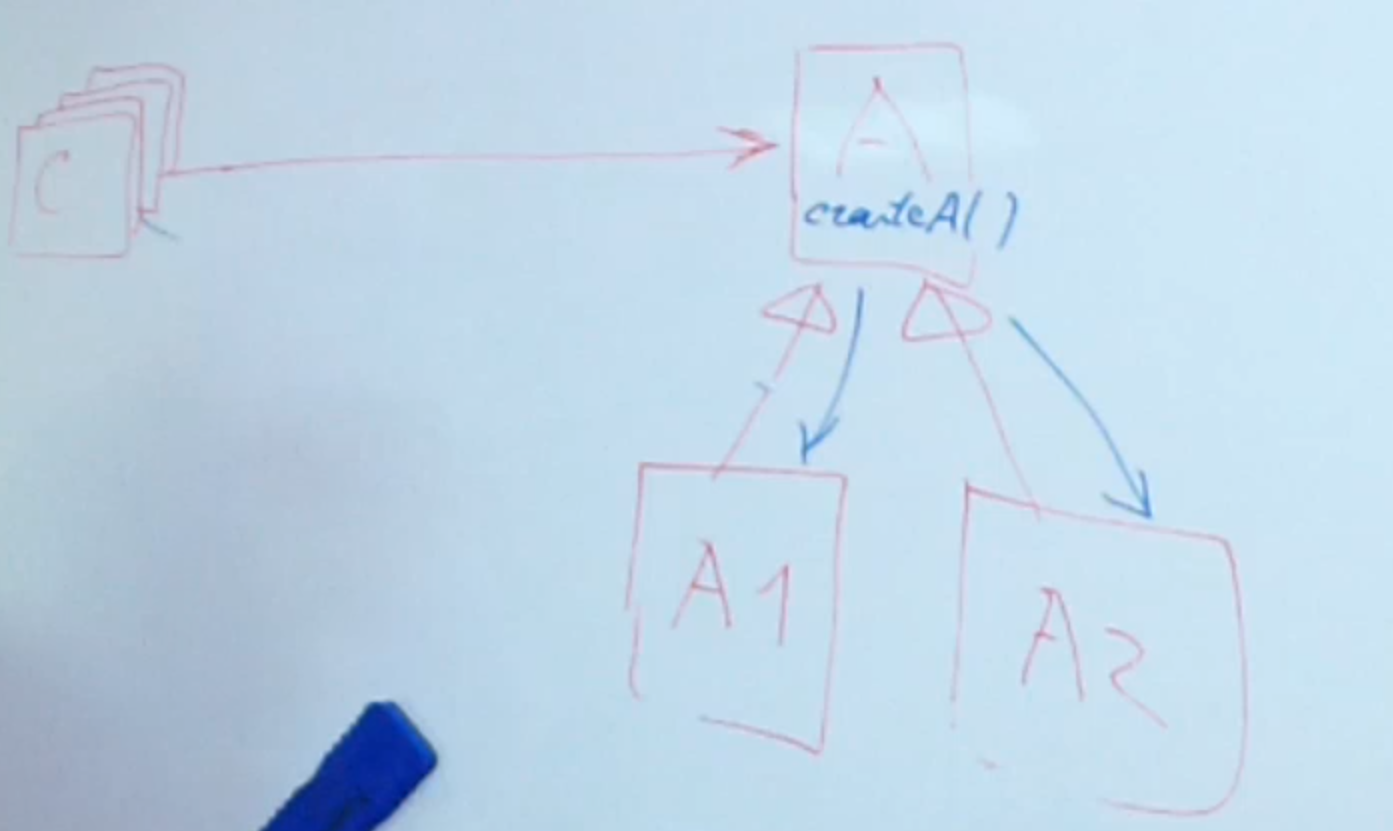 C
A
createA()
A1
A2